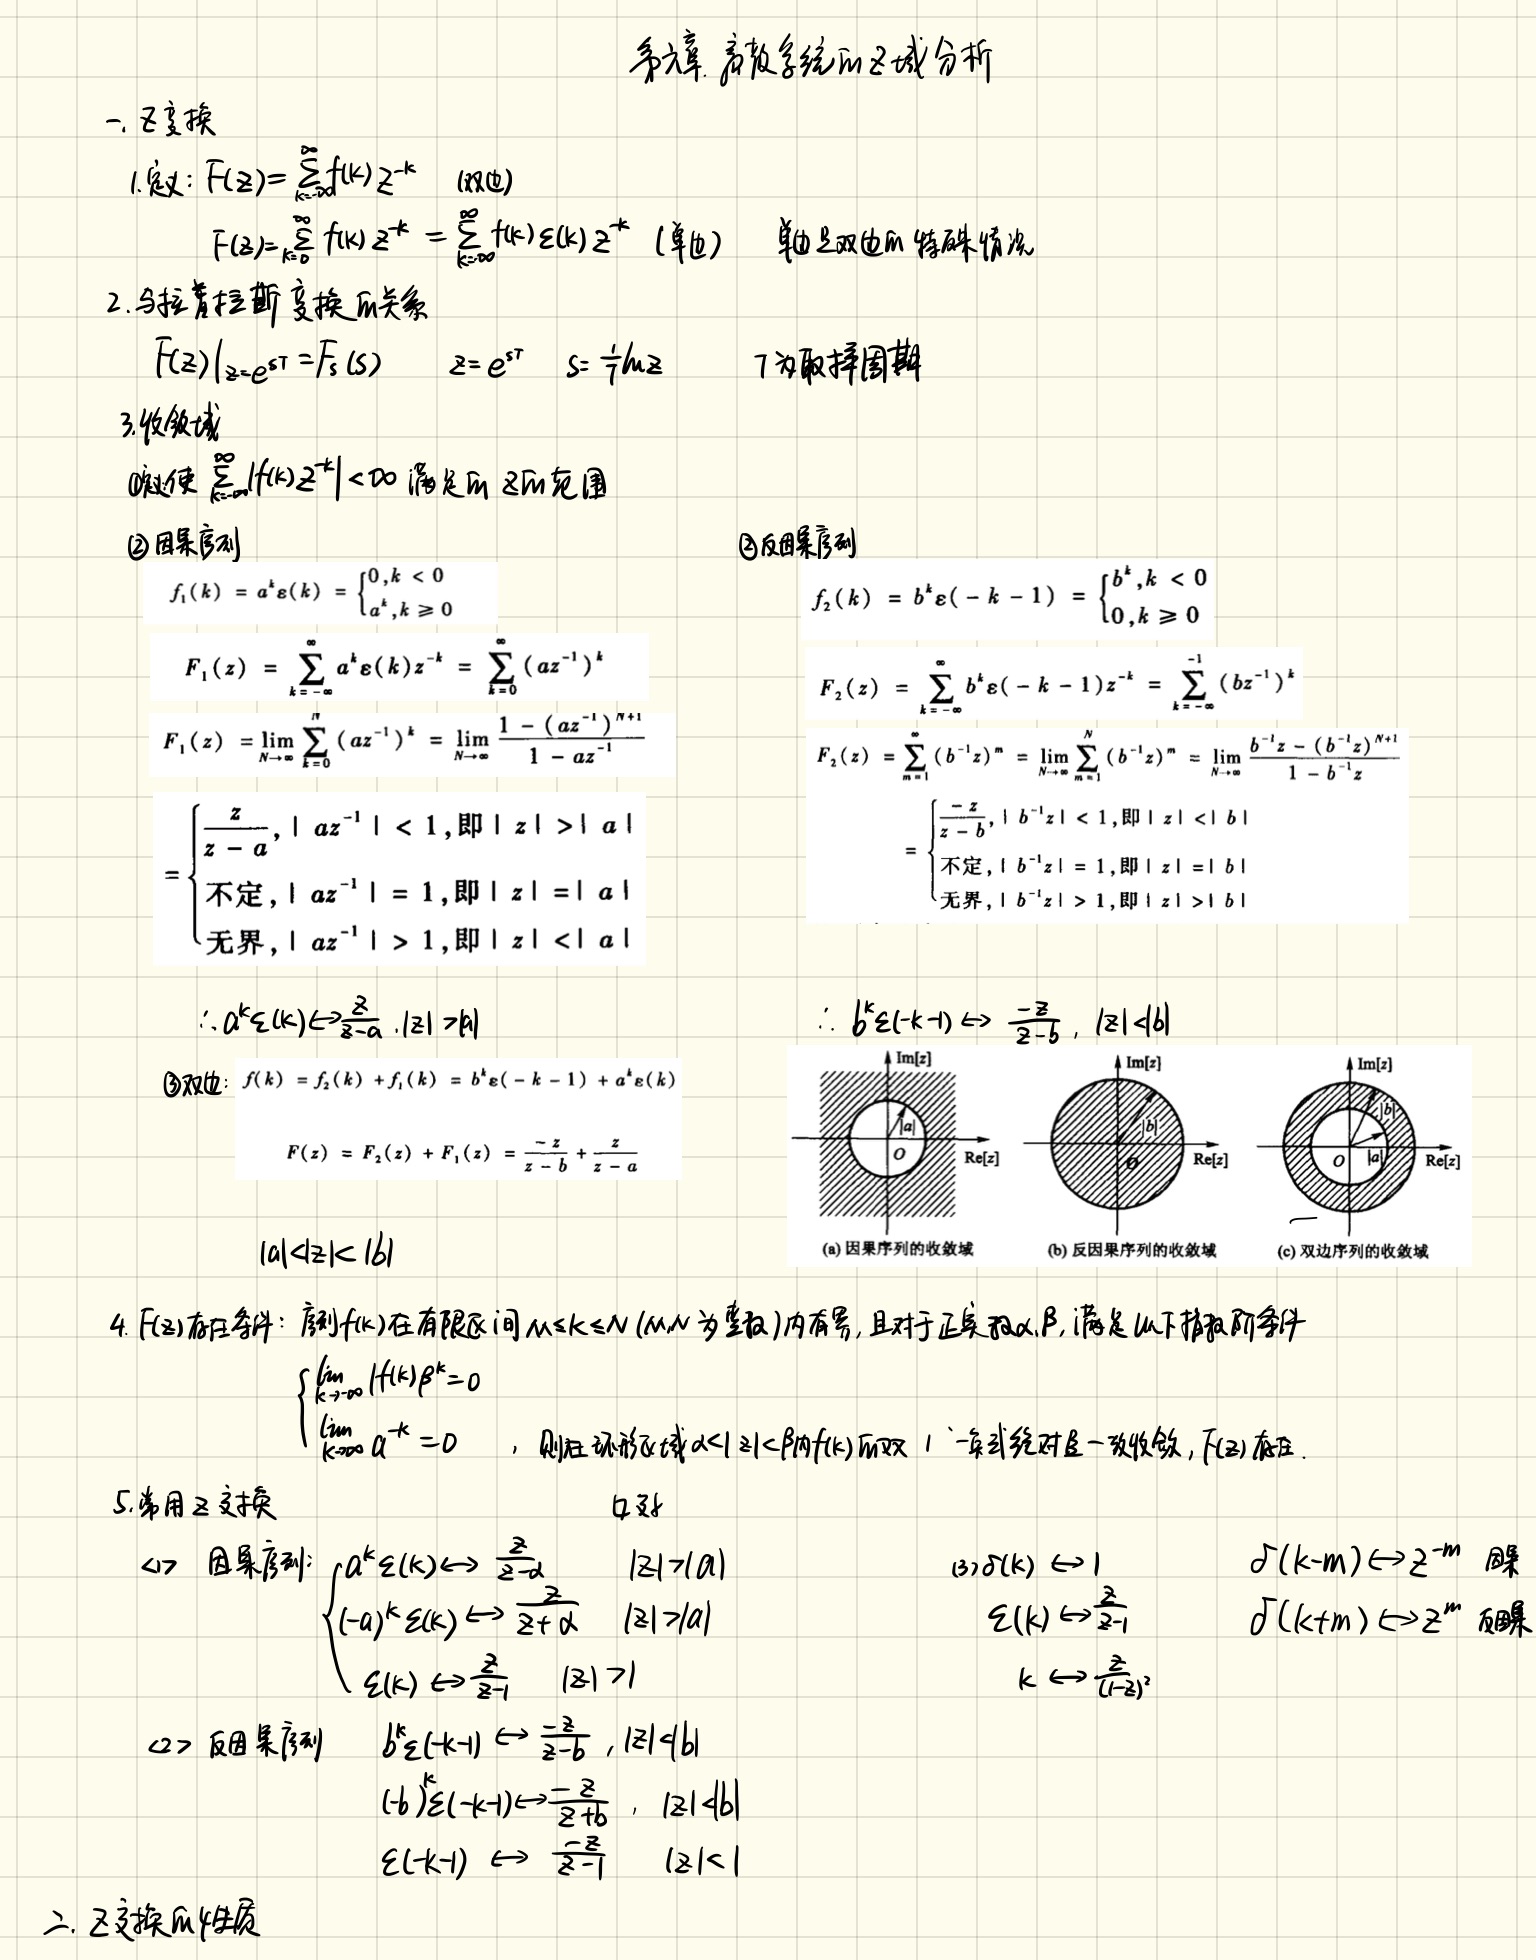 第六章. 离散系统的Z域分析
一. Z变换
1.定义: F(z)=∑_{k=-∞}^{∞} f(k) z^{-k} (双边)
F(z)=∑_{k=0}^{∞} f(k) z^{-k} = ∑_{k=-∞}^{∞} f(k) ε(k) z^{-k} (单边) 单边是双边的特殊情况
2.与拉普拉斯变换的关系
F(z)|_{z=e^{sT}} = F_s(s) z=e^{sT} s=\frac{1}{T}ln z T为取样周期
3.收敛域
①定义:使 ∑_{k=-∞}^{∞} |f(k) z^{-k}| < ∞ 满足的 z的范围
②因果序列
f₁(k) = a^k ε(k) = { 0, k < 0
a^k, k ≥ 0
F₁(z) = ∑_{k=-∞}^{∞} a^k ε(k) z^{-k} = ∑_{k=0}^{∞} (az^{-1})^k
F₁(z) = lim_{N→∞} ∑_{k=0}^{N} (az^{-1})^k = lim_{N→∞} \frac{1-(az^{-1})^{N+1}}{1-az^{-1}}
= { \frac{z}{z-a}, |az^{-1}| < 1,即|z|>|a|
不定,|az^{-1}| = 1,即|z|=|a|
无界,|az^{-1}| > 1,即|z|<|a|
∴ a^k ε(k) ↔ \frac{z}{z-a} . |z| >|a|
②反因果序列
f₂(k) = b^k ε(-k-1) = { b^k, k < 0
0, k ≥ 0
F₂(z) = ∑_{k=-∞}^{∞} b^k ε(-k-1) z^{-k} = ∑_{k=-∞}^{-1} (bz^{-1})^k
F₂(z) = ∑_{m=1}^{∞} (b^{-1}z)^m = lim_{N→∞} ∑_{m=1}^{N} (b^{-1}z)^m = lim_{N→∞} \frac{b^{-1}z-(b^{-1}z)^{N+1}}{1-b^{-1}z}
= { \frac{-z}{z-b}, |b^{-1}z| < 1,即|z|<|b|
不定,|b^{-1}z| = 1,即|z|=|b|
无界,|b^{-1}z| > 1,即|z|>|b|
∴ b^k ε(-k-1) ↔ \frac{-z}{z-b}, |z|<|b|
③双边: f(k) = f₂(k) + f₁(k) = b^k ε(-k-1) + a^k ε(k)
F(z) = F₂(z) + F₁(z) = \frac{-z}{z-b} + \frac{z}{z-a}
|a|<|z|<|b|
Im[z] |a| O Re[z]
(a) 因果序列的收敛域
Im[z] |b| O Re[z]
(b) 反因果序列的收敛域
Im[z] |b| |a| O Re[z]
(c) 双边序列的收敛域
4. F(z)存在条件: 序列f(k)在有限区间 M≤k≤N (M,N为整数)内有界,且对于正实数α,β,满足以下指数阶条件
{ lim_{k→-∞} |f(k) β^k = 0
lim_{k→∞} a^{-k} = 0 , 则在环形区域 α<|z|<β内f(k)的双 式绝对且一致收敛, F(z)存在.
5.常用Z变换
<1> 因果序列: { a^k ε(k) ↔ \frac{z}{z-α} |z|>|a|
(-a)^k ε(k) ↔ \frac{z}{z+α} |z|>|a|
ε(k) ↔ \frac{z}{z-1} |z|>1
(3) δ(k) ↔ 1 δ(k-m) ↔ z^{-m} 因果
ε(k) ↔ \frac{z}{z-1} δ(k+m) ↔ z^m 反因果
k ↔ \frac{z}{(1-z)²}
<2> 反因果序列 b^k ε(-k-1) ↔ \frac{-z}{z-b} , |z|<|b|
(-b)^k ε(-k-1) ↔ \frac{-z}{z+b} , |z|<|b|
ε(-k-1) ↔ \frac{-z}{z-1} |z|<1
二. Z变换的性质